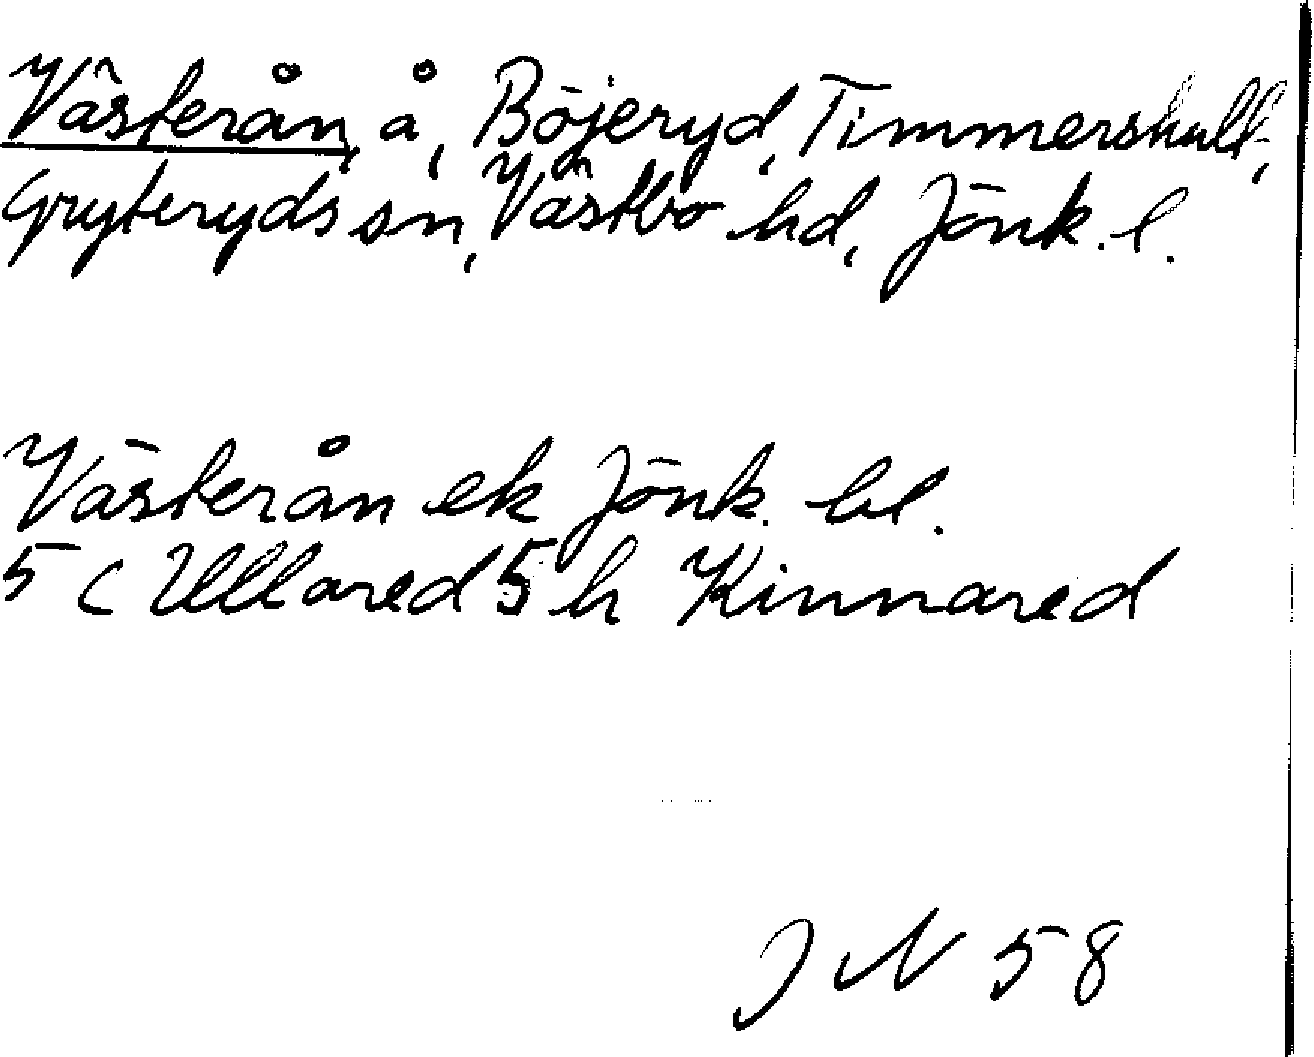 Västerån, å, Böjeryd, Timmershult,
Gryteryds sn, Västbo hd, Jönk. l.
Västerån ek Jönk. bl.
5 C Ullared 5 h Kinnared
J N 58